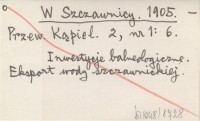 W Szczawnicy. 1905. –
Przew. Kąpiel. 2, nr 1: 6.
Inwestycje balneologiczne.
Eksport wody szczawnickiej.